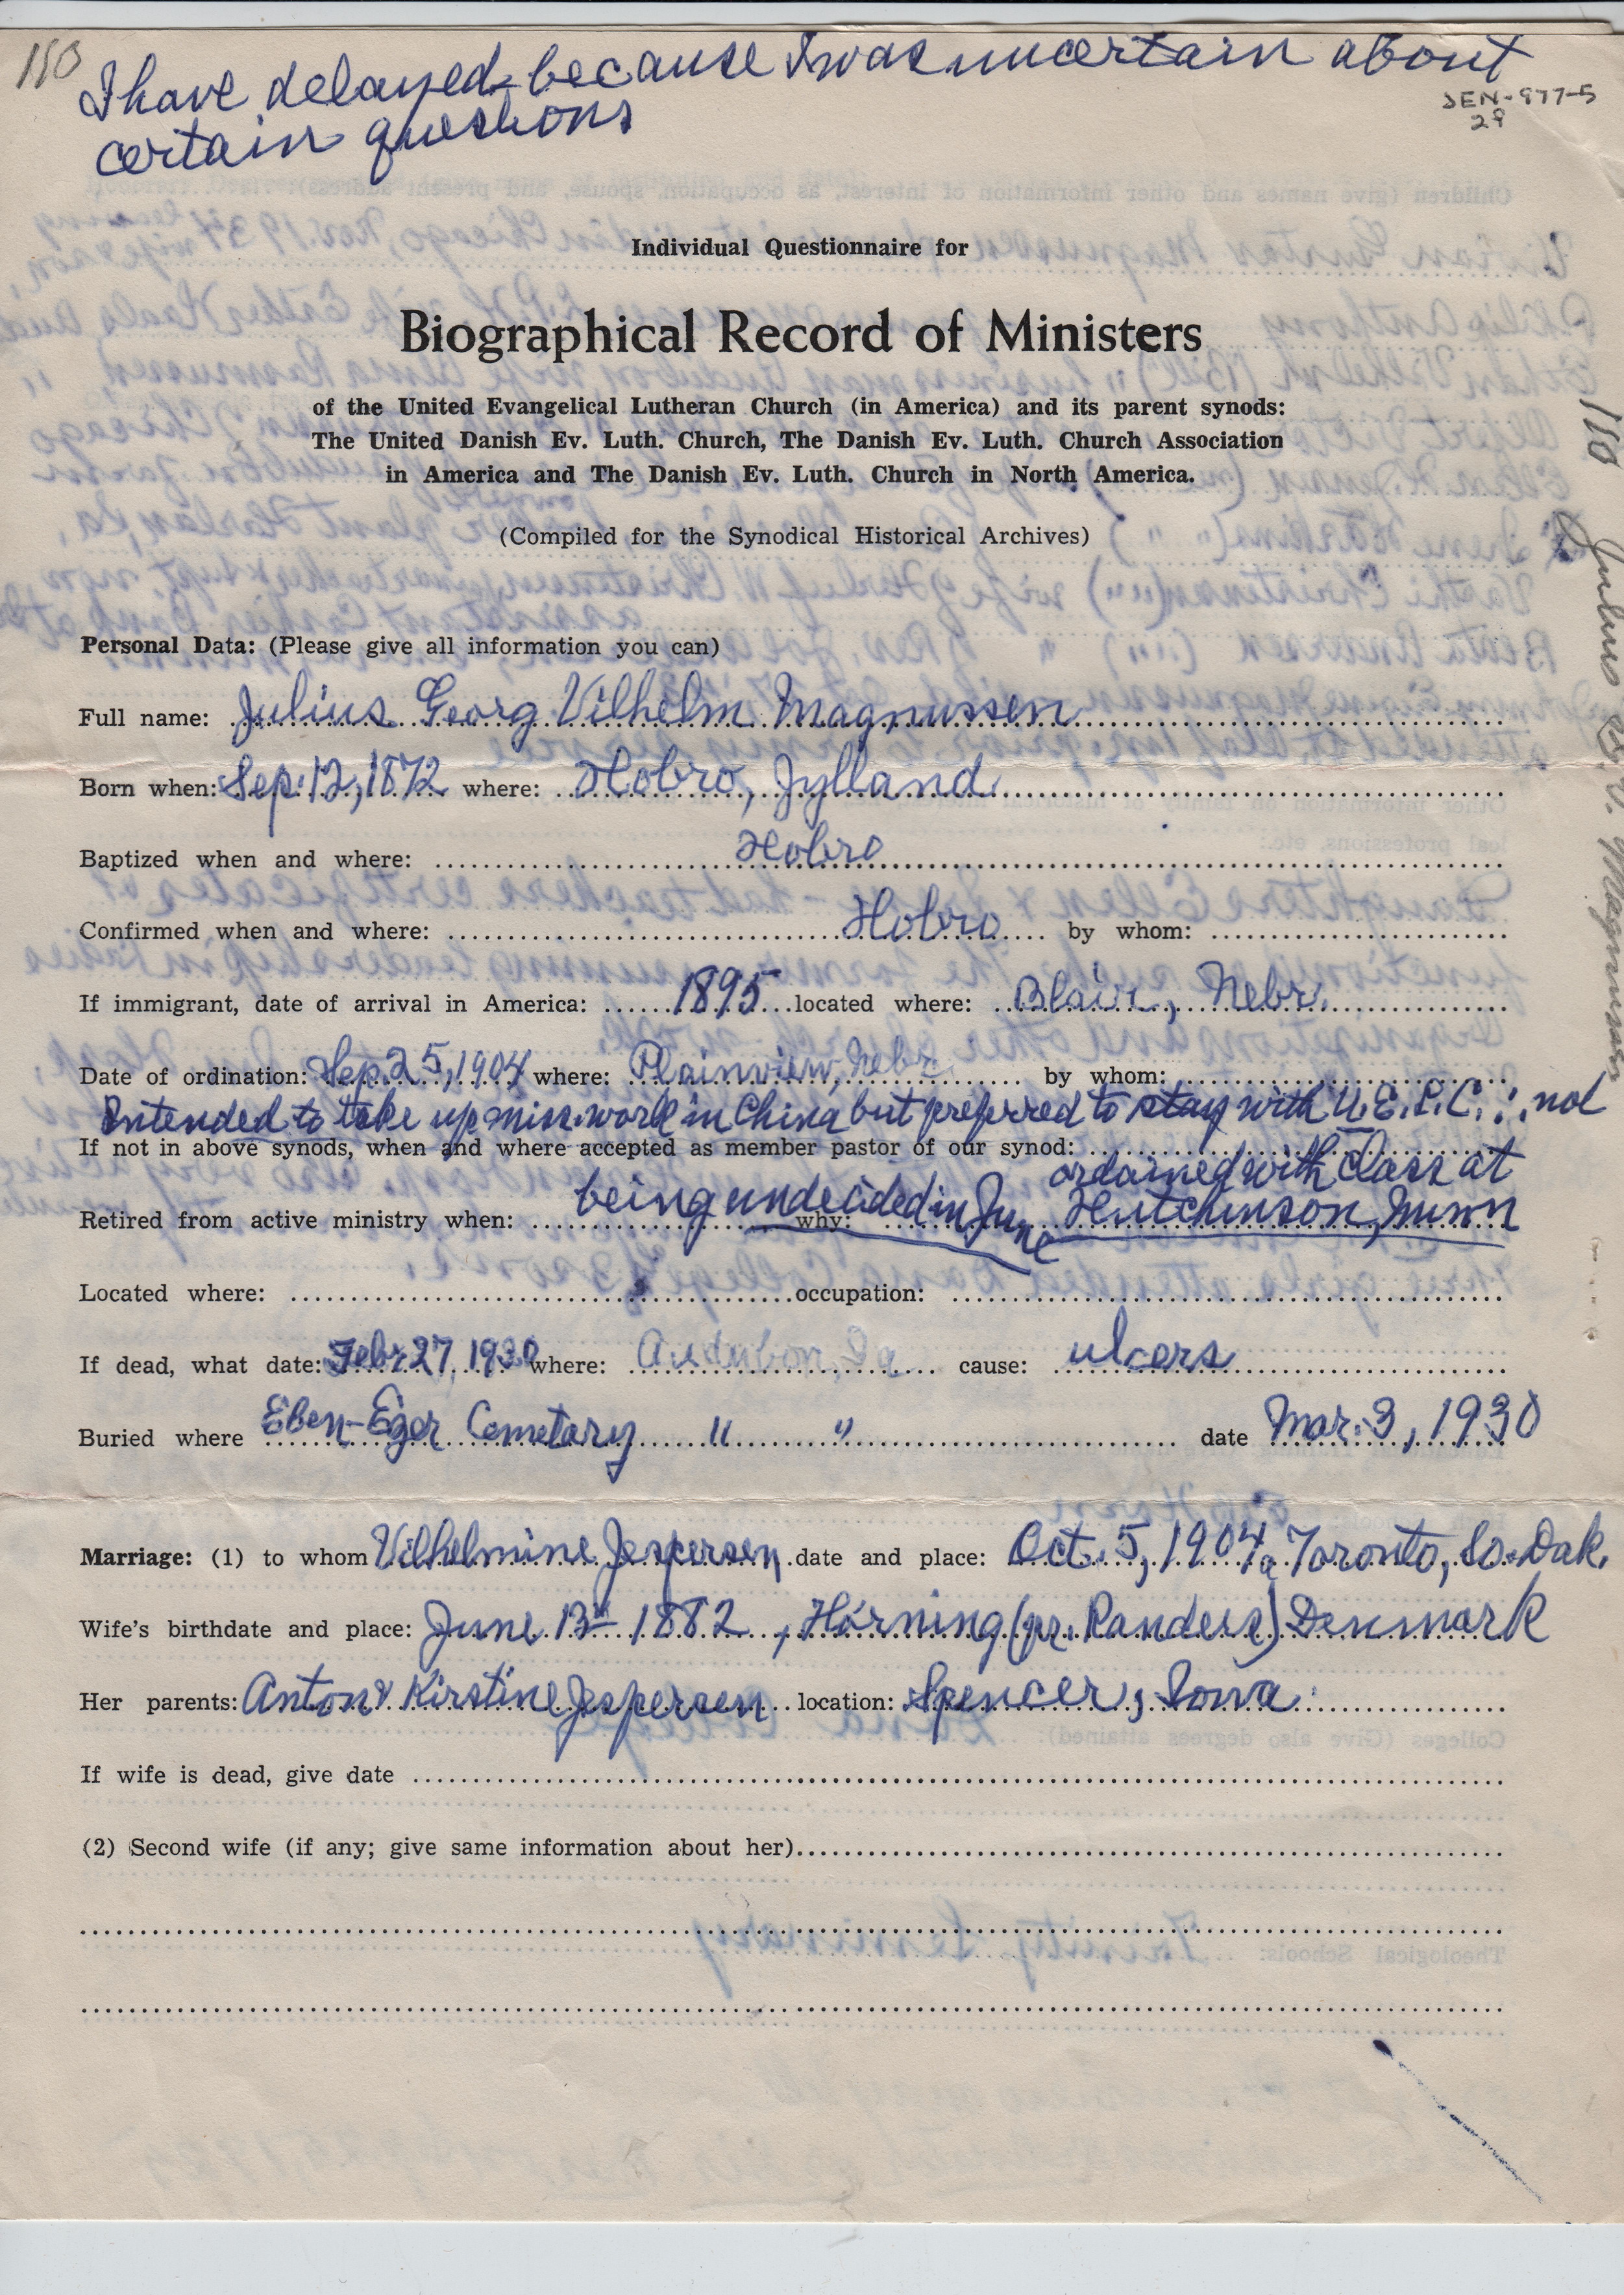 110
I have delayed because I was uncertain about
certain questions
JEN-977-5
29
Individual Questionnaire for
Biographical Record of Ministers
of the United Evangelical Lutheran Church (in America) and its parent synods:
The United Danish Ev. Luth. Church, The Danish Ev. Luth. Church Association
in America and The Danish Ev. Luth. Church in North America.
(Compiled for the Synodical Historical Archives)
110
Personal Data: (Please give all information you can)
Full name: Julius Georg Vilhelm Magnussen
Born when: Sep. 12, 1872 where: Hobro, Jylland
Baptized when and where: Hobro
Confirmed when and where: Hobro by whom:
If immigrant, date of arrival in America: 1895 located where: Blair, Nebr.
Date of ordination: Sep. 25, 1904 where: Plainview, Nebr by whom:
Intended to take up miss. work in China but preferred to stay with U.E.L.C. ∴ not
If not in above synods, when and where accepted as member pastor of our synod:
ordained with class at
Retired from active ministry when: being undecided in June why: Hutchinson, Minn
Located where: occupation:
If dead, what date: Febr 27, 1930 where: Audubon, Ia cause: ulcers
Buried where Eben-Ezer Cemetary " " date Mar. 3, 1930
Marriage: (1) to whom Vilhelmine Jespersen date and place: Oct. 5, 1904, Toronto, So. Dak.
Wife's birthdate and place: June 13th 1882, Hörning (pr. Randers) Denmark
Her parents: Anton & Kirstine Jespersen location: Spencer, Iowa
If wife is dead, give date
(2) Second wife (if any; give same information about her)